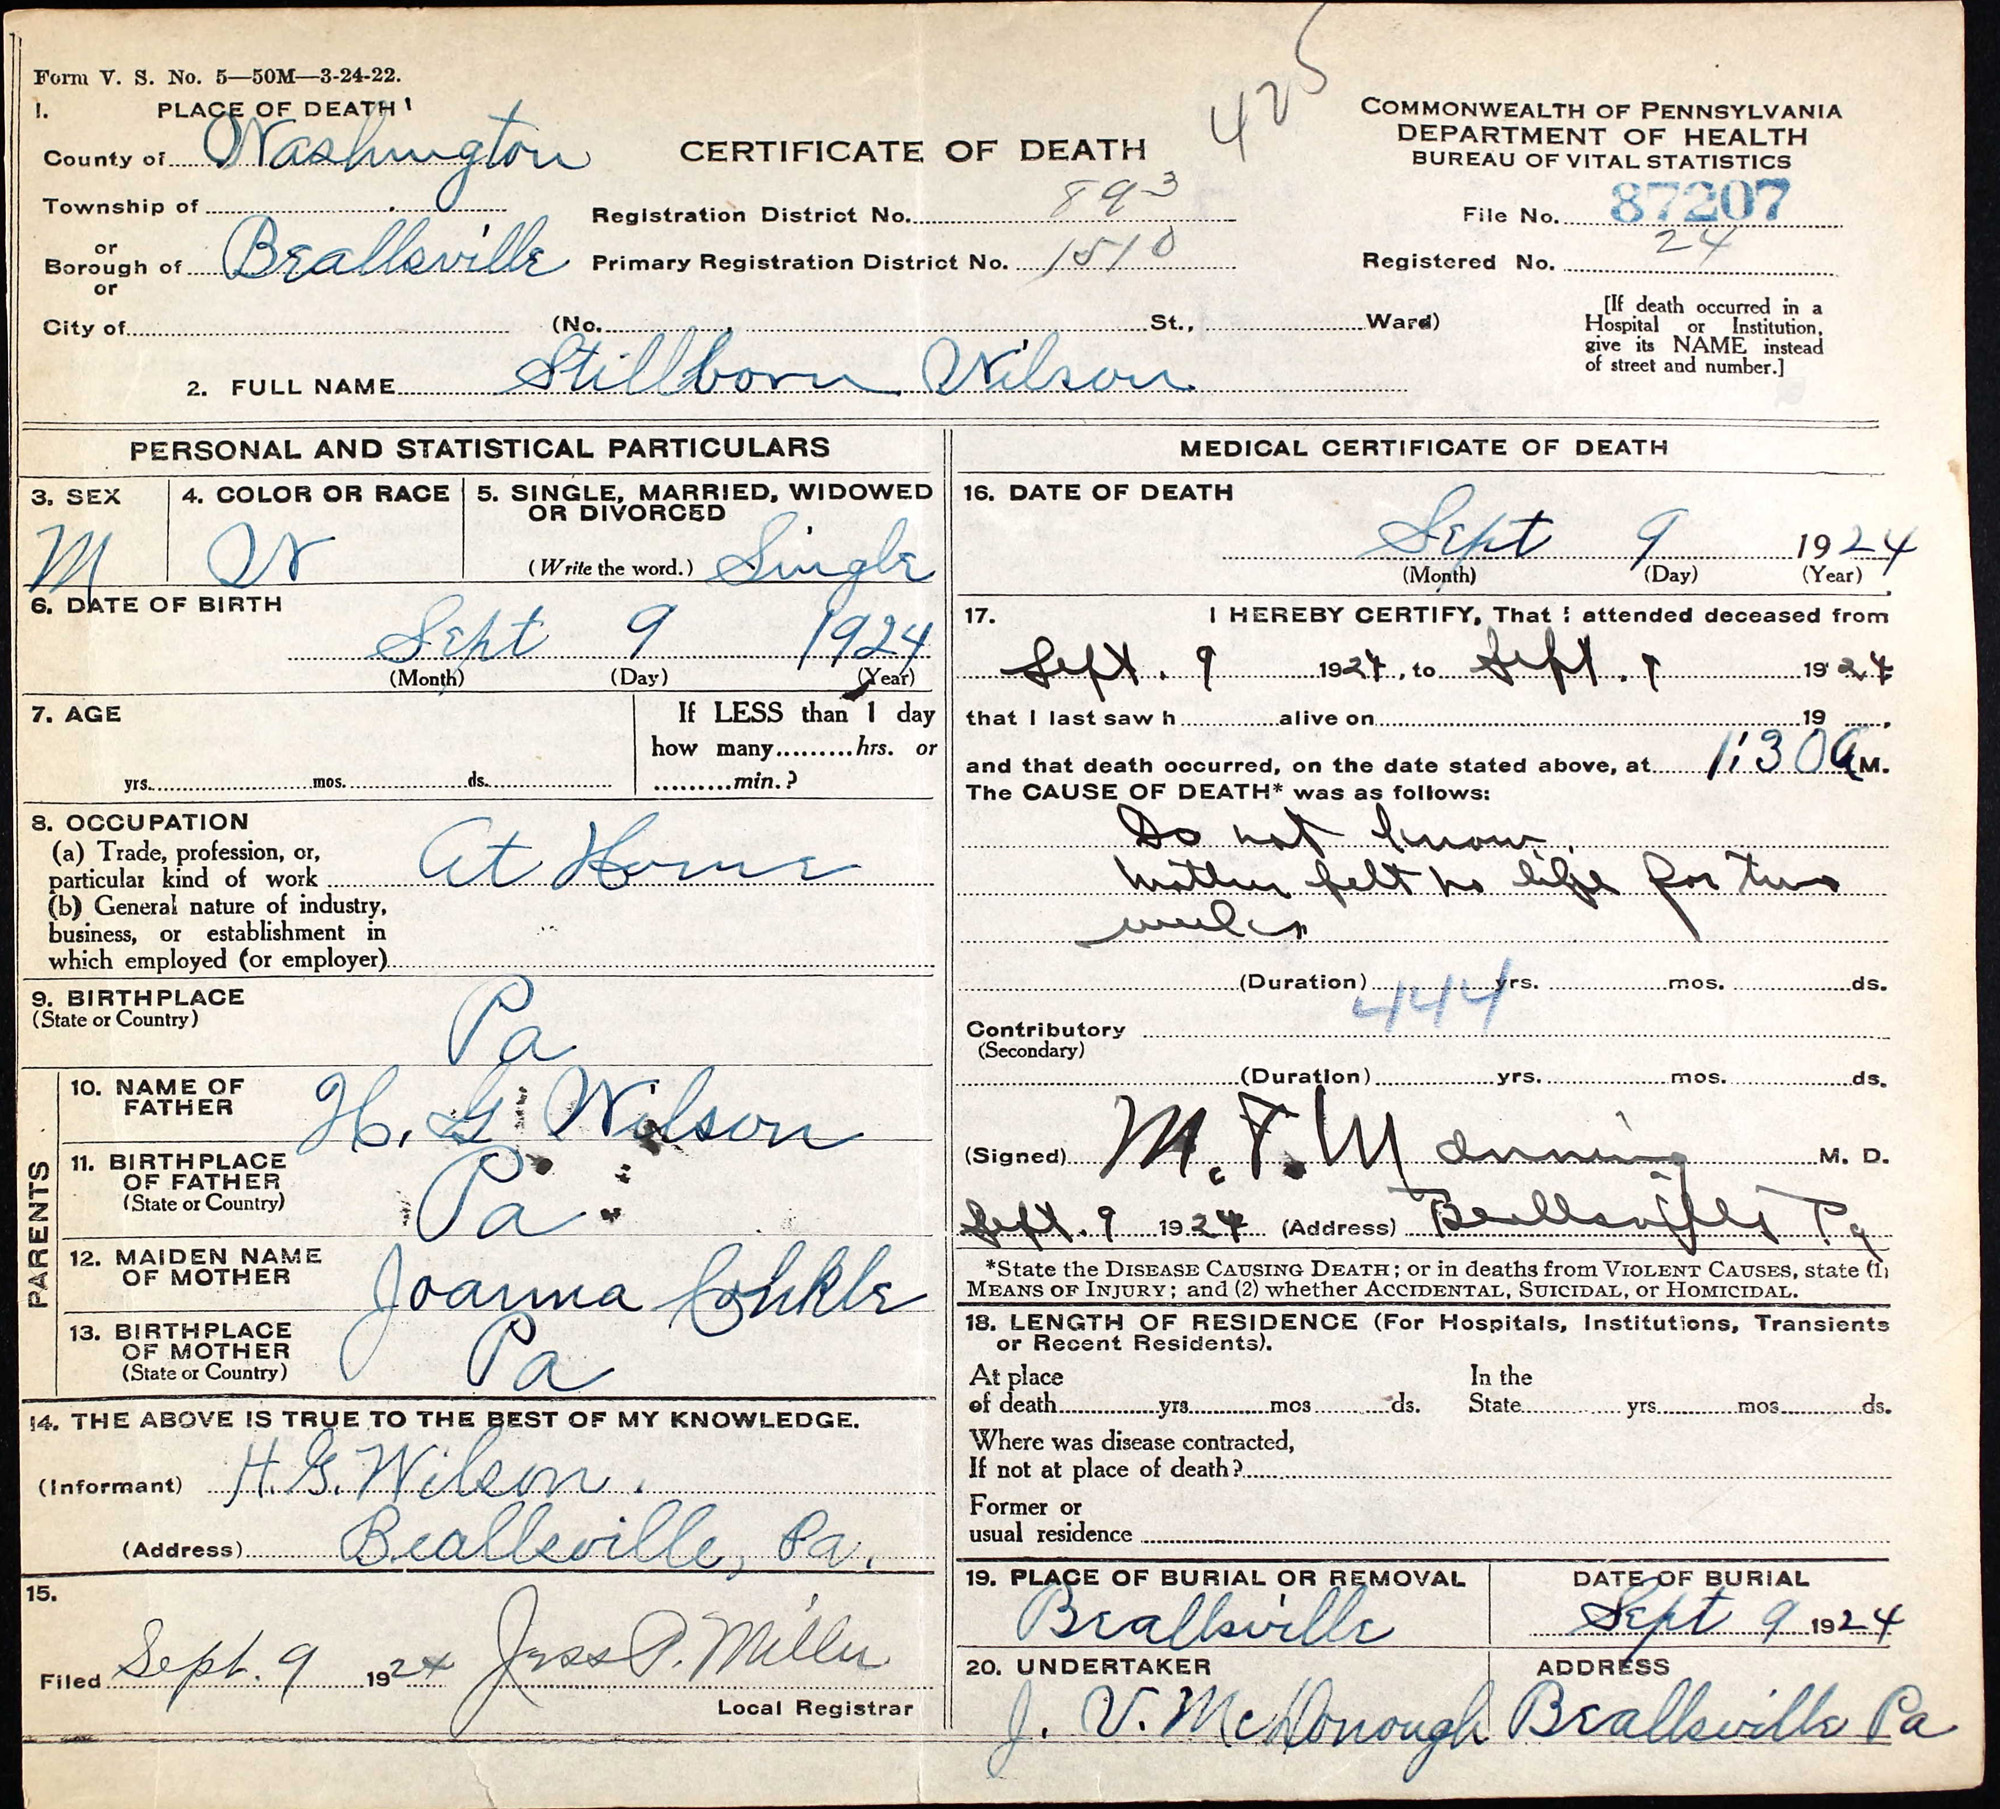 Form V. S. No. 5—50M—3-24-22.
425
1. PLACE OF DEATH
County of Washington
CERTIFICATE OF DEATH
COMMONWEALTH OF PENNSYLVANIA
DEPARTMENT OF HEALTH
BUREAU OF VITAL STATISTICS
Township of
Registration District No. 893
File No. 87207
or
Borough of Beallsville
Primary Registration District No. 1510
Registered No. 24
or
City of (No. St., Ward)
[If death occurred in a
Hospital or Institution,
give its NAME instead
of street and number.]
2. FULL NAME Stillborn Wilson
PERSONAL AND STATISTICAL PARTICULARS
3. SEX
M
4. COLOR OR RACE
W
5. SINGLE, MARRIED, WIDOWED
OR DIVORCED
(Write the word.) Single
6. DATE OF BIRTH
Sept 9 1924
(Month) (Day) (Year)
7. AGE
yrs. mos. ds.
If LESS than 1 day
how many hrs. or
min.?
8. OCCUPATION
(a) Trade, profession, or,
particular kind of work At Home
(b) General nature of industry,
business, or establishment in
which employed (or employer)
9. BIRTHPLACE
(State or Country)
Pa
PARENTS
10. NAME OF
FATHER
H. G. Wilson
11. BIRTHPLACE
OF FATHER
(State or Country)
Pa
12. MAIDEN NAME
OF MOTHER
Joanna Conkle
13. BIRTHPLACE
OF MOTHER
(State or Country)
Pa
14. THE ABOVE IS TRUE TO THE BEST OF MY KNOWLEDGE.
(Informant) H. G. Wilson.
(Address) Beallsville, Pa.
15.
Filed Sept. 9 1924 Jess P. Miller
Local Registrar
MEDICAL CERTIFICATE OF DEATH
16. DATE OF DEATH
Sept 9 1924
(Month) (Day) (Year)
17. I HEREBY CERTIFY, That I attended deceased from
Sept. 9 1924, to Sept. 9 1924
that I last saw h alive on 19 ,
and that death occurred, on the date stated above, at 1:30 A M.
The CAUSE OF DEATH* was as follows:
Do not know.
Mother felt no life for two
weeks
(Duration) yrs. mos. ds.
444
Contributory
(Secondary)
(Duration) yrs. mos. ds.
(Signed) M. T. Manning M. D.
Sept. 9 1924 (Address) Beallsville Pa
*State the DISEASE CAUSING DEATH; or in deaths from VIOLENT CAUSES, state (1)
MEANS OF INJURY; and (2) whether ACCIDENTAL, SUICIDAL, or HOMICIDAL.
18. LENGTH OF RESIDENCE (For Hospitals, Institutions, Transients
or Recent Residents).
At place In the
of death yrs. mos ds. State yrs mos ds.
Where was disease contracted,
If not at place of death?
Former or
usual residence
19. PLACE OF BURIAL OR REMOVAL
Beallsville
DATE OF BURIAL
Sept 9 1924
20. UNDERTAKER
J. V. McDonough
ADDRESS
Beallsville Pa